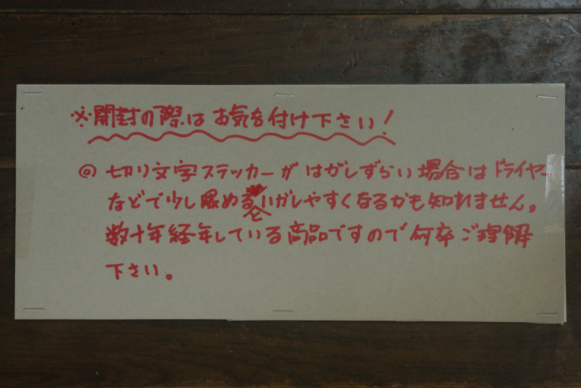 ※開封の際はお気を付け下さい!
◎切り文字ステッカーがはがしずらい場合はドライヤー
などで少し暖めるとはがしやすくなるかも知れません。
数十年経年している商品ですので何卒ご理解
下さい。